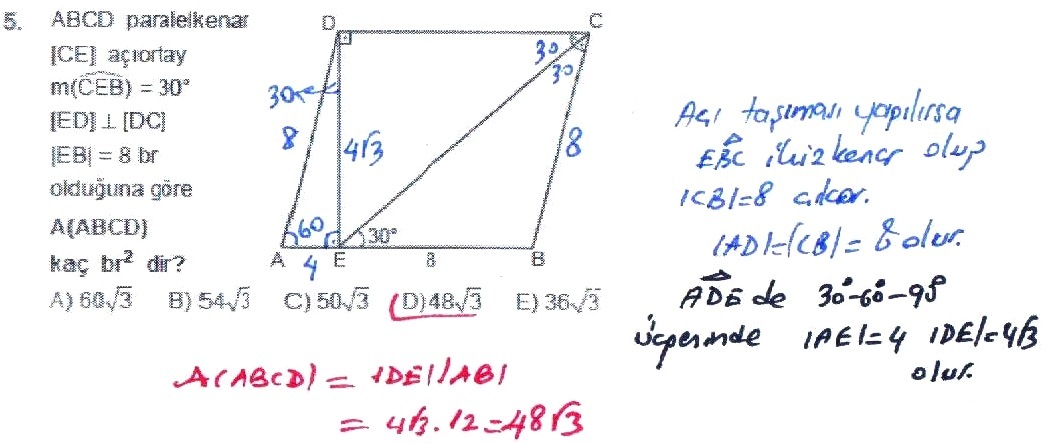 5. ABCD paralelkenar
[CE] açıortay
m(CEB) = 30°
[ED] ⊥ [DC]
|EB| = 8 br
olduğuna göre
A(ABCD)
kaç br² dir?
A) 60√3 B) 54√3 C) 50√3 D) 48√3 E) 36√3
D
C
30
30
30
8
4√3
8
60
30°
A
4
E
8
B
Açı taşıması yapılırsa
EBC ikizkenar olup
|CB|=8 çıkar.
|AD|=|CB|= 8 olur.
ADE de 30°-60°-90°
üçgeninde |AE|=4 |DE|=4√3
olur.
A(ABCD) = |DE||AB|
= 4√3.12=48√3